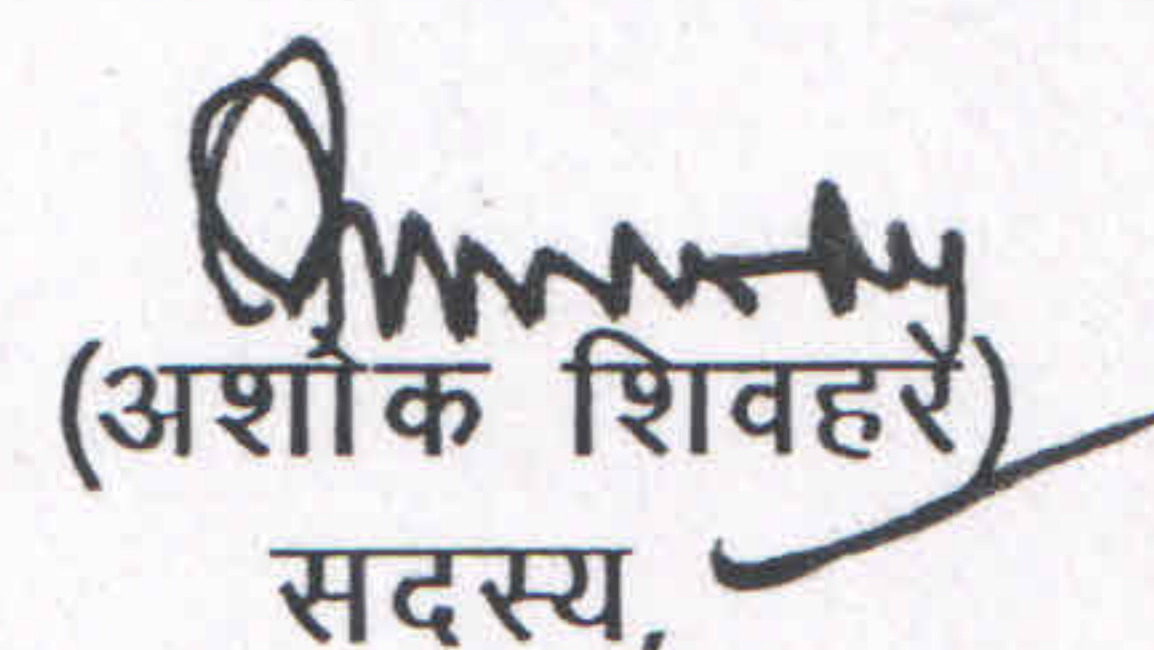 (अशोक शिवहरे)
सदस्य,